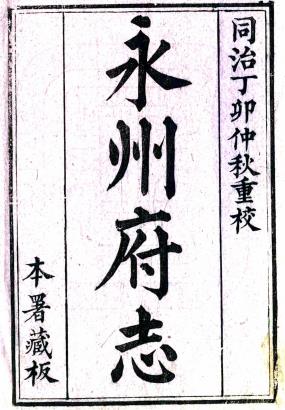 同治丁卯仲秋重校
永州府志
本署藏板